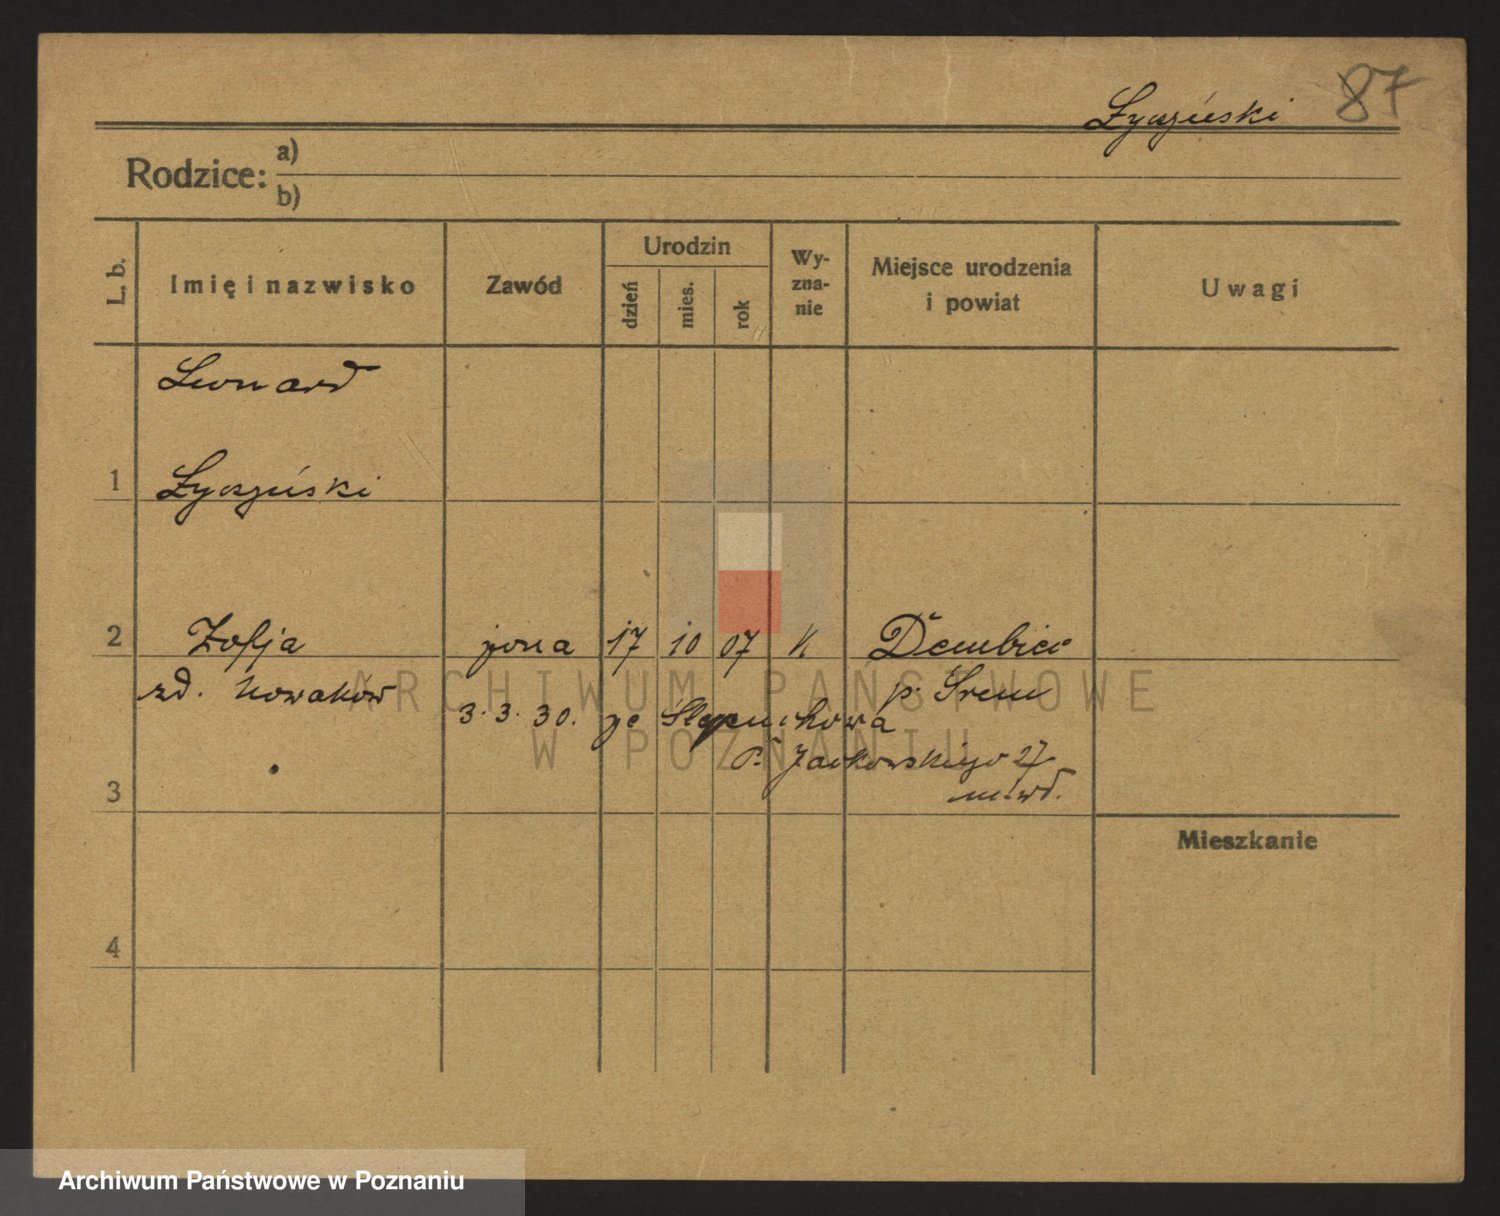 87
Łyszyński
Rodzice: a)
b)
L. b.
Imię i nazwisko
Zawód
Urodzin
dzień
mies.
rok
Wy-
zna-
nie
Miejsce urodzenia
i powiat
Uwagi
Leonard
1 Łyszyński
2 Zofja żona 17 10 07 K
zd. Nowaków p. Śrem
3. 3. 30. ze
P. Jackowskiego 27
3
Mieszkanie
4
ARCHIWUM PAŃSTWOWE
W POZNANIU
Archiwum Państwowe w Poznaniu